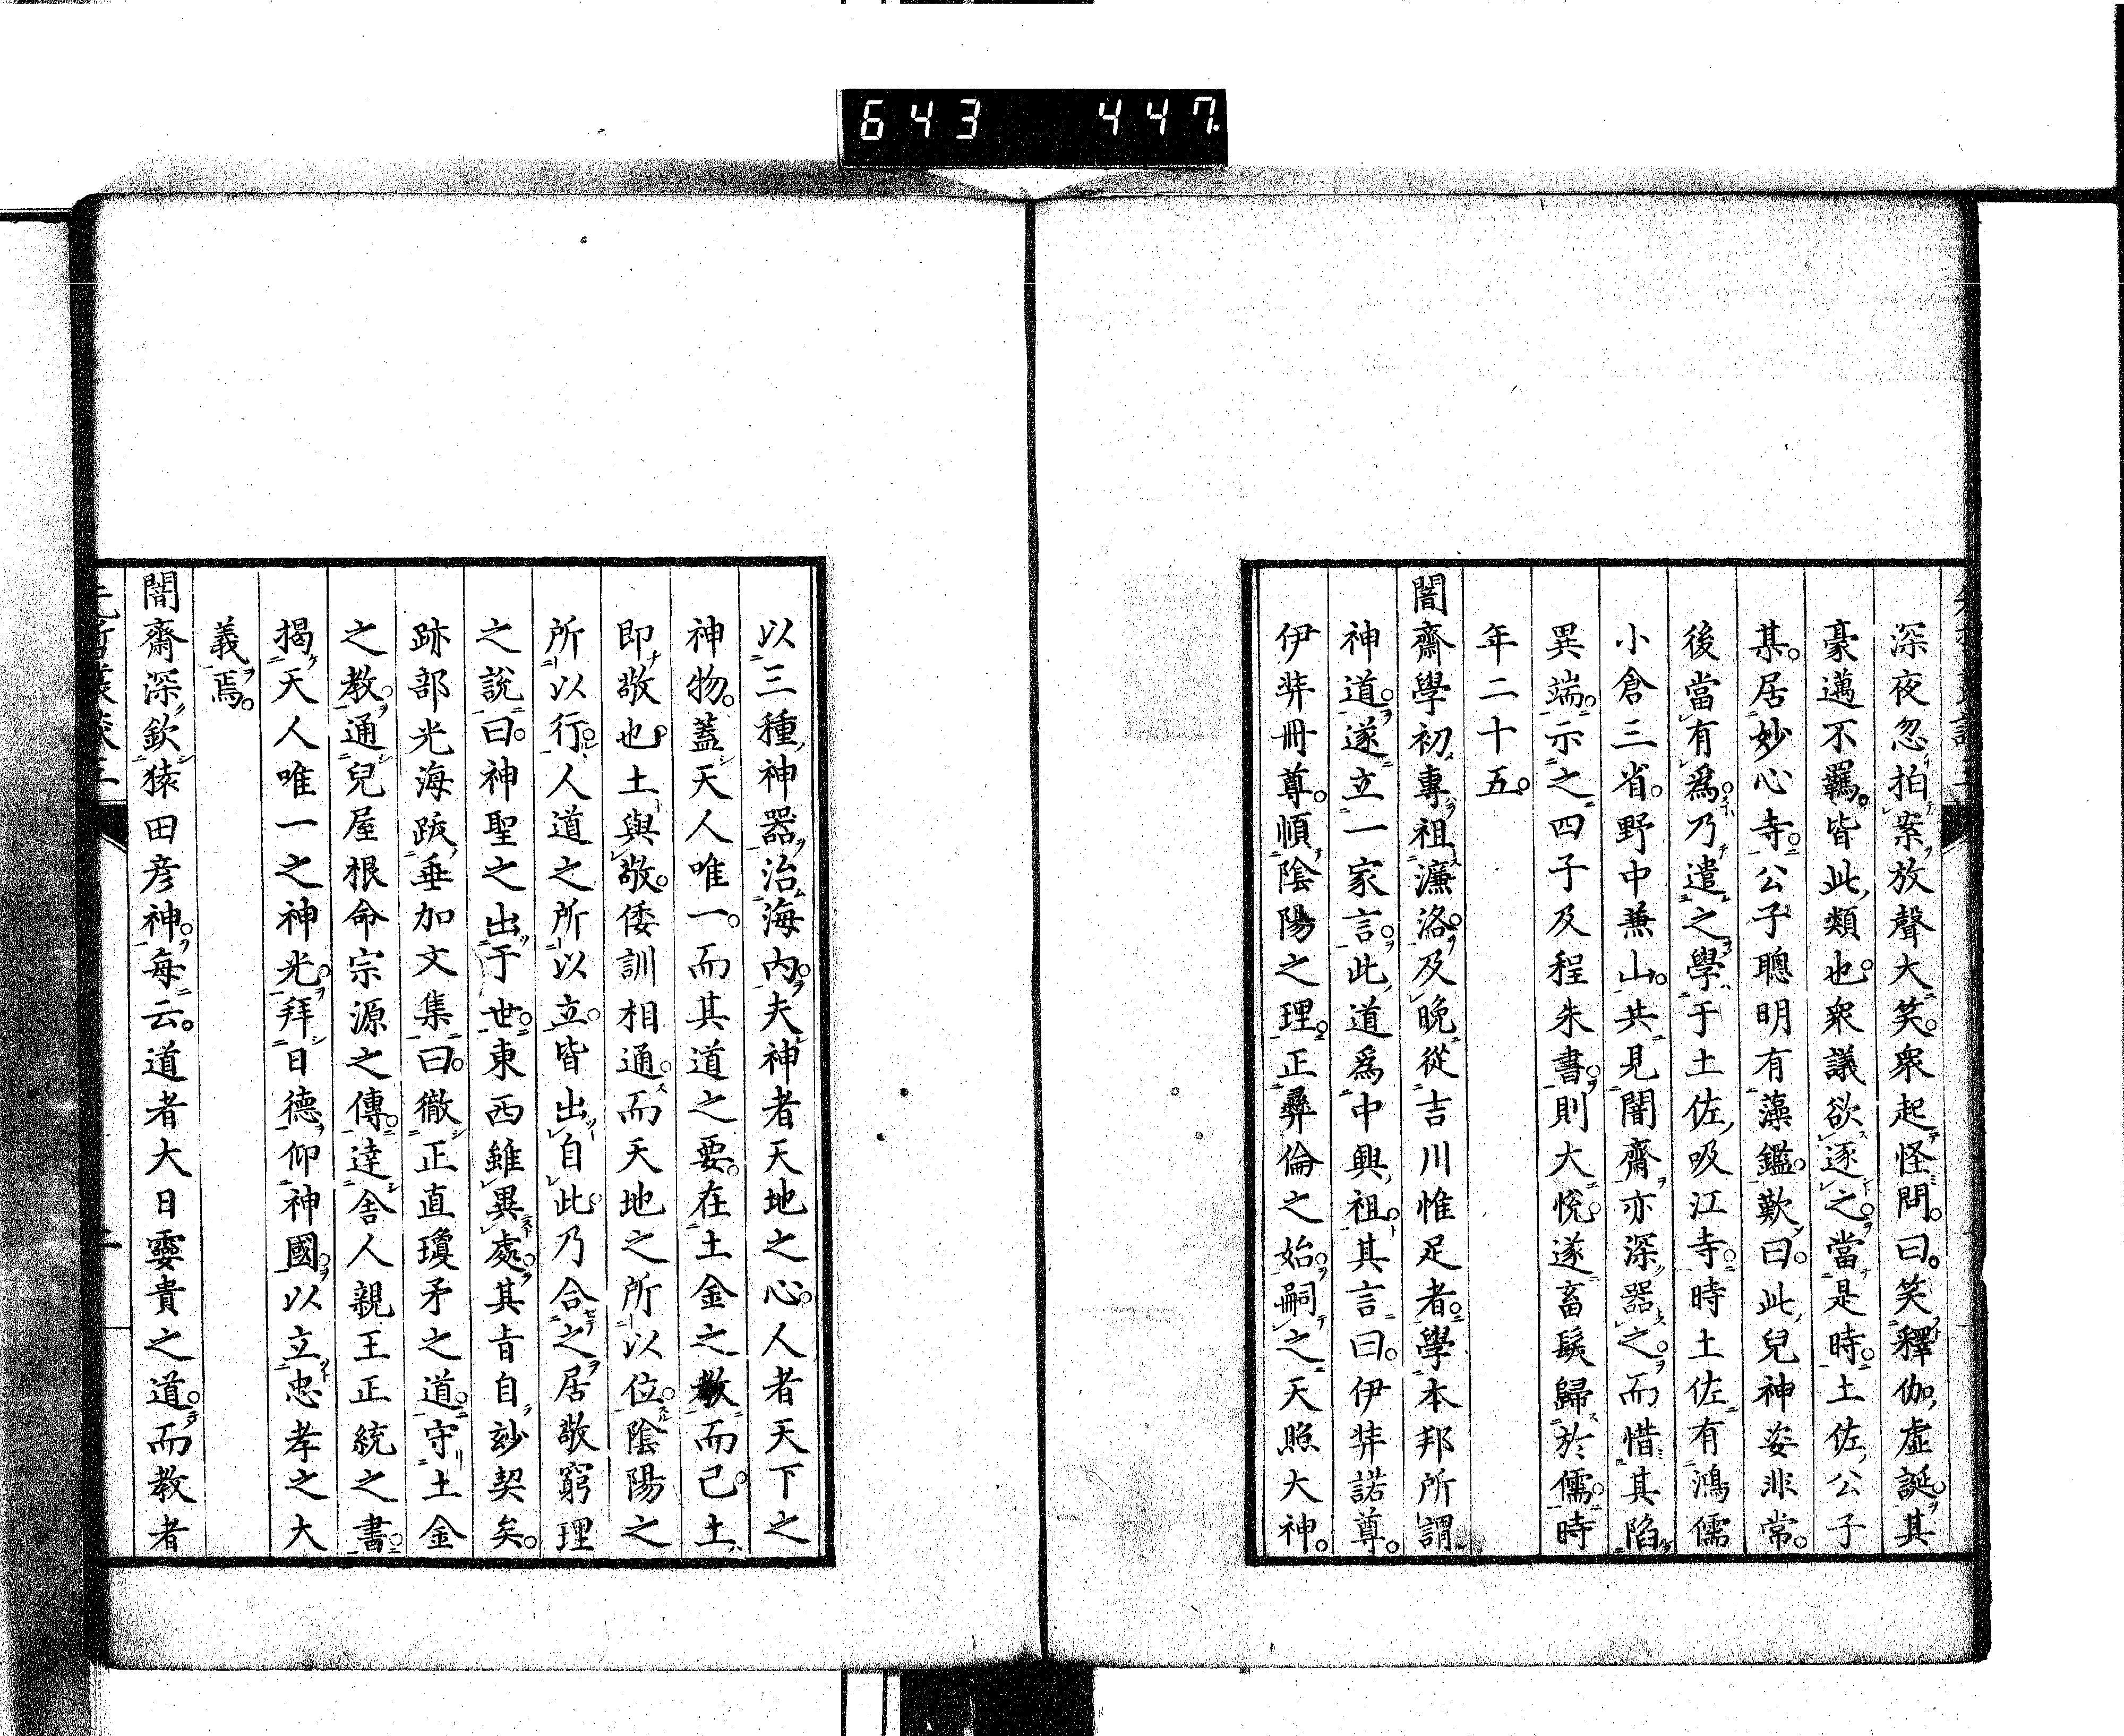 643 447
深夜忽拍案放聲大笑。衆起怪問。曰。笑釋伽虛誕。其
豪邁不羈。皆此類也。衆議欲逐之。當是時。土佐公子
某。居妙心寺。公子聰明有藻鑑。歎曰。此兒神姿非常。
後當有爲。乃遣之學于土佐吸江寺。時土佐有鴻儒
小倉三省。野中兼山。共見闇齋。亦深器之。而惜其陷
異端。示之四子及程朱書。則大悅。遂畜髮歸於儒。時
年二十五。
闇齋學初專祖濂洛。及晚從吉川惟足者。學本邦所謂
神道。遂立一家言。此道爲中興祖。其言曰。伊弉諾尊。
伊弉冊尊。順陰陽之理。正彝倫之始。嗣之天照大神。
以三種神器治海內。夫神者天地之心。人者天下之
神物。蓋天人唯一。而其道之要。在土金之敎而已。土
即敬也。土與敬。倭訓相通。而天地之所以位。陰陽之
所以行。人道之所以立。皆出自此。乃合之居敬窮理
之說。曰。神聖之出于世。東西雖異處。其旨自玅契矣。
跡部光海跋垂加文集。曰。徹正直瓊矛之道。守土金
之教。通兒屋根命宗源之傳。達舍人親王正統之書。
揭天人唯一之神光。拜日德仰神國。以立忠孝之大
義焉。
闇齋深欽猿田彦神。每云。道者大日孁貴之道。而教者